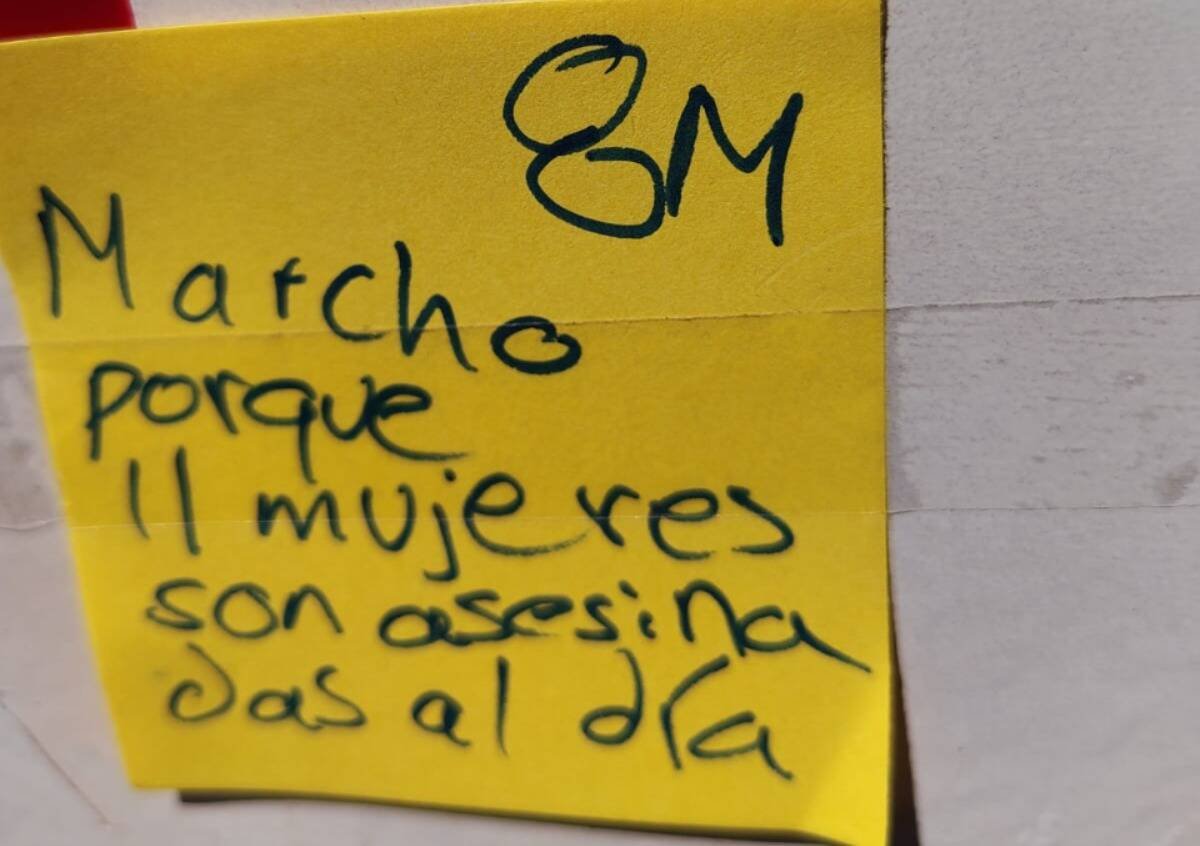 8M
Marcho
porque
11 mujeres
son asesina
das al día